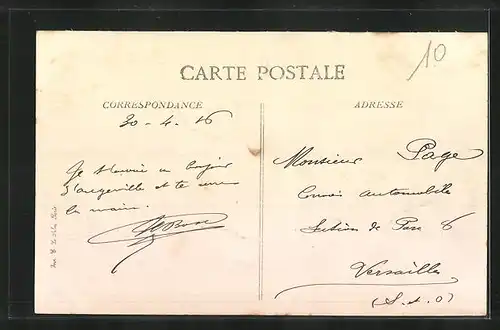 10
CARTE POSTALE
CORRESPONDANCE
ADRESSE
30-4-16
Je t'envoie un bonjour
d'angerville et te serre
la main.
Monsieur Page
Convois Automobile
Section de Parc 6
Versailles
(S.-et-O)